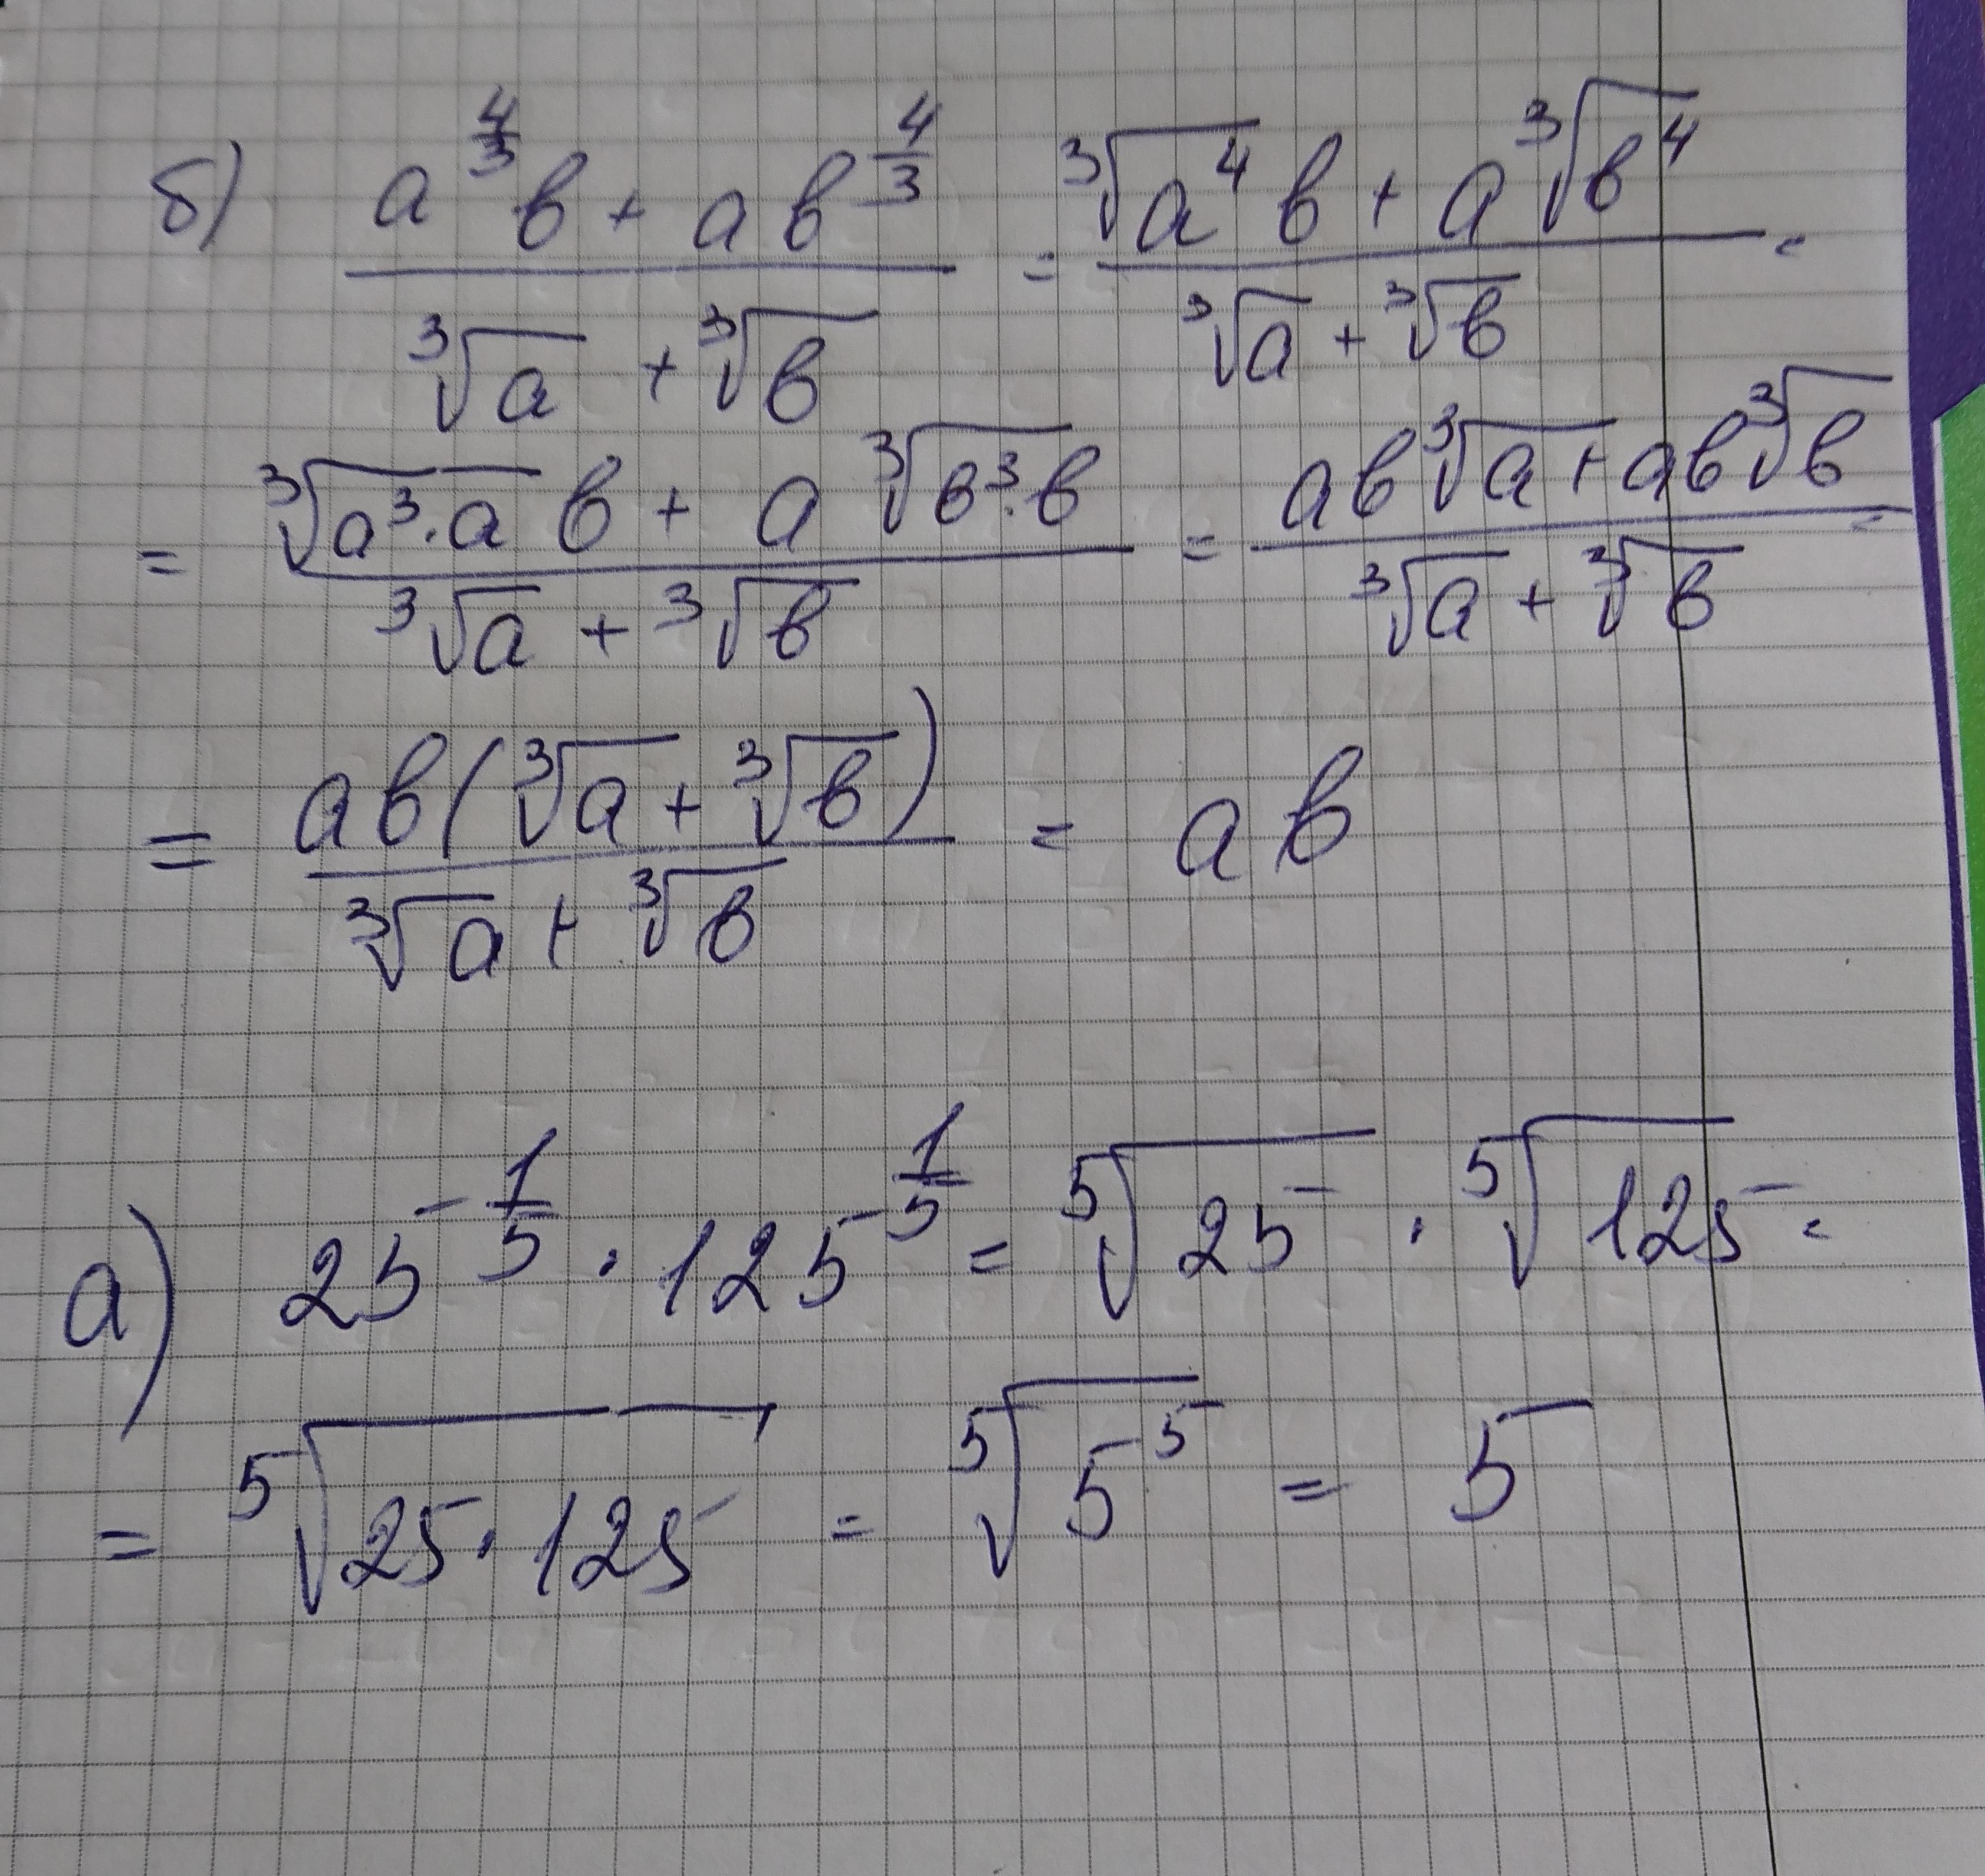 б) (a^(4/3)в + aв^(4/3))/(∛a + ∛в) = (∛(a⁴)в + a∛(в⁴))/(∛a + ∛в) =
= (∛(a³·a)в + a∛(в³·в))/(∛a + ∛в) = (aв∛a + aв∛в)/(∛a + ∛в) =
= (aв(∛a + ∛в))/(∛a + ∛в) = aв
а) 25^(1/5) · 125^(1/5) = ⁵√25 · ⁵√125 =
= ⁵√(25·125) = ⁵√(5⁵) = 5